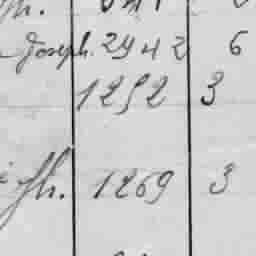 Joseph. 2942 6
1252 3
fh. 1269 3